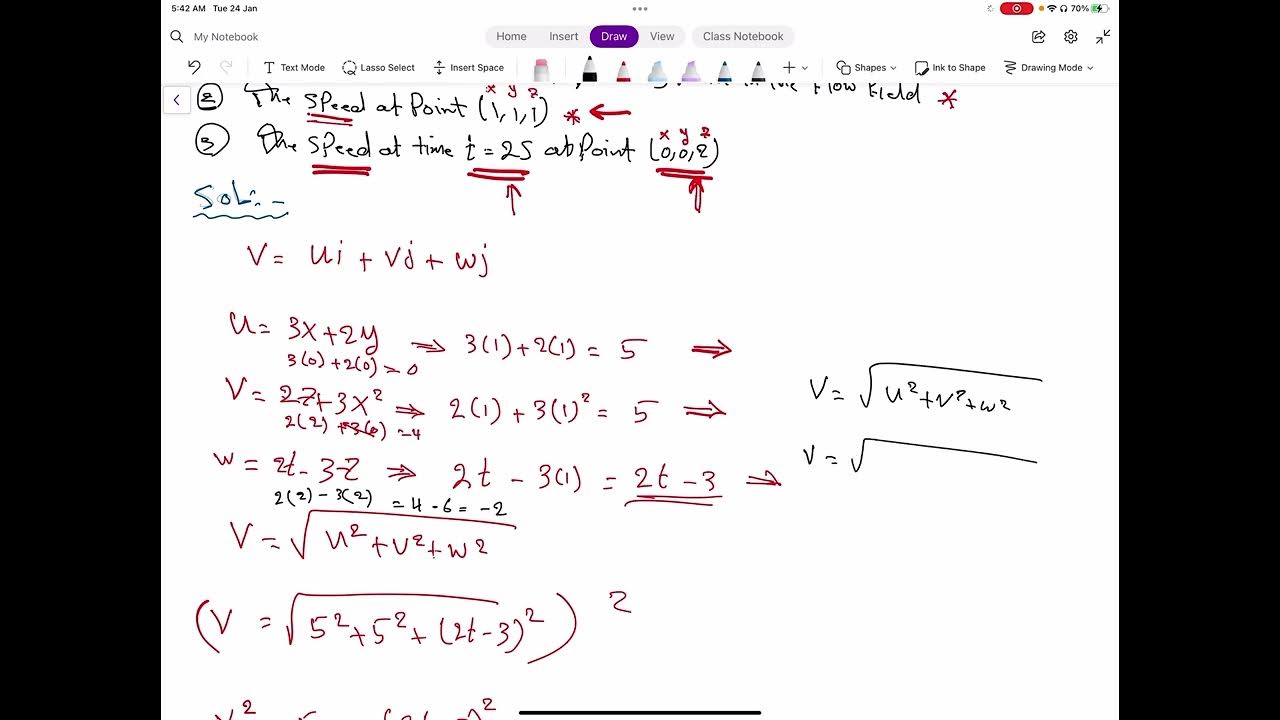 5:42 AM Tue 24 Jan
70%
My Notebook
Home Insert Draw View Class Notebook
Text Mode Lasso Select Insert Space Shapes Ink to Shape Drawing Mode
x y z
② The speed at Point (1,1,1) * ←
Flow Field *
x y z
③ The speed at time t = 2s at Point (0,0,2)
Sol:-
V = ui + vj + wj
u = 3x+2y ⇒ 3(1)+2(1) = 5 ⇒
3(0)+2(0) = 0
V = 2z+3x² ⇒ 2(1) + 3(1)² = 5 ⇒
2(2) +3(0) =4
w = 2t - 3z ⇒ 2t - 3(1) = 2t - 3 ⇒
2(2) - 3(2) = 4 - 6 = -2
V = √u²+v²+w²
V = √
V = √u²+v²+w²
(V = √5²+5²+(2t-3)²) 2